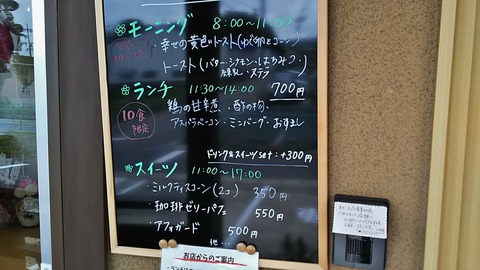 モーニング 8:00〜11:00
・幸せの黄色いトースト(ゆで卵とコーン)
トースト(バター・シナモン・はちみつ・
練乳・ステラ
ランチ 11:30〜14:00 700円
10食
限定
鶏の甘辛煮、酢の物、
アスパラベーコン・ミンバーグ・おすまし
ドリンク&スイーツset:+300円
スイーツ 11:00〜17:00
・ミルクティスコーン(2コ) 350円
・珈琲ゼリーパフェ 550円
・アフォガード 500円
他…
お店からのご案内